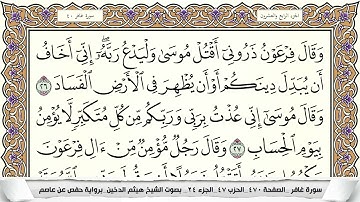 الجزء الرابع والعشرون
سورة غافر ٤٠
وَقَالَ فِرْعَوْنُ ذَرُونِىٓ أَقْتُلْ مُوسَىٰ وَلْيَدْعُ رَبَّهُۥٓۖ إِنِّىٓ أَخَافُ
أَن يُبَدِّلَ دِينَكُمْ أَوْ أَن يُظْهِرَ فِى ٱلْأَرْضِ ٱلْفَسَادَ ٢٦
وَقَالَ مُوسَىٰٓ إِنِّى عُذْتُ بِرَبِّى وَرَبِّكُم مِّن كُلِّ مُتَكَبِّرٍ لَّا يُؤْمِنُ
بِيَوْمِ ٱلْحِسَابِ ٢٧ وَقَالَ رَجُلٌ مُّؤْمِنٌ مِّنْ ءَالِ فِرْعَوْنَ
سورة غافر _الصفحة ٤٧٠_ الحزب ٤٧_ الجزء ٢٤_ بصوت الشيخ هيثم الدخين_ برواية حفص عن عاصم